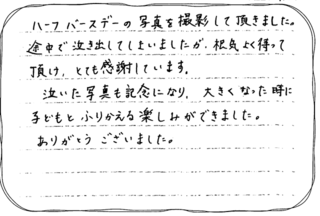 ハーフバースデーの写真を撮影して頂きました。
途中で泣き出してしまいましたが、根気よく待って
頂け、とても感謝しています。
泣いた写真も記念になり、大きくなった時に
子どもとふりかえる楽しみができました。
ありがとうございました。